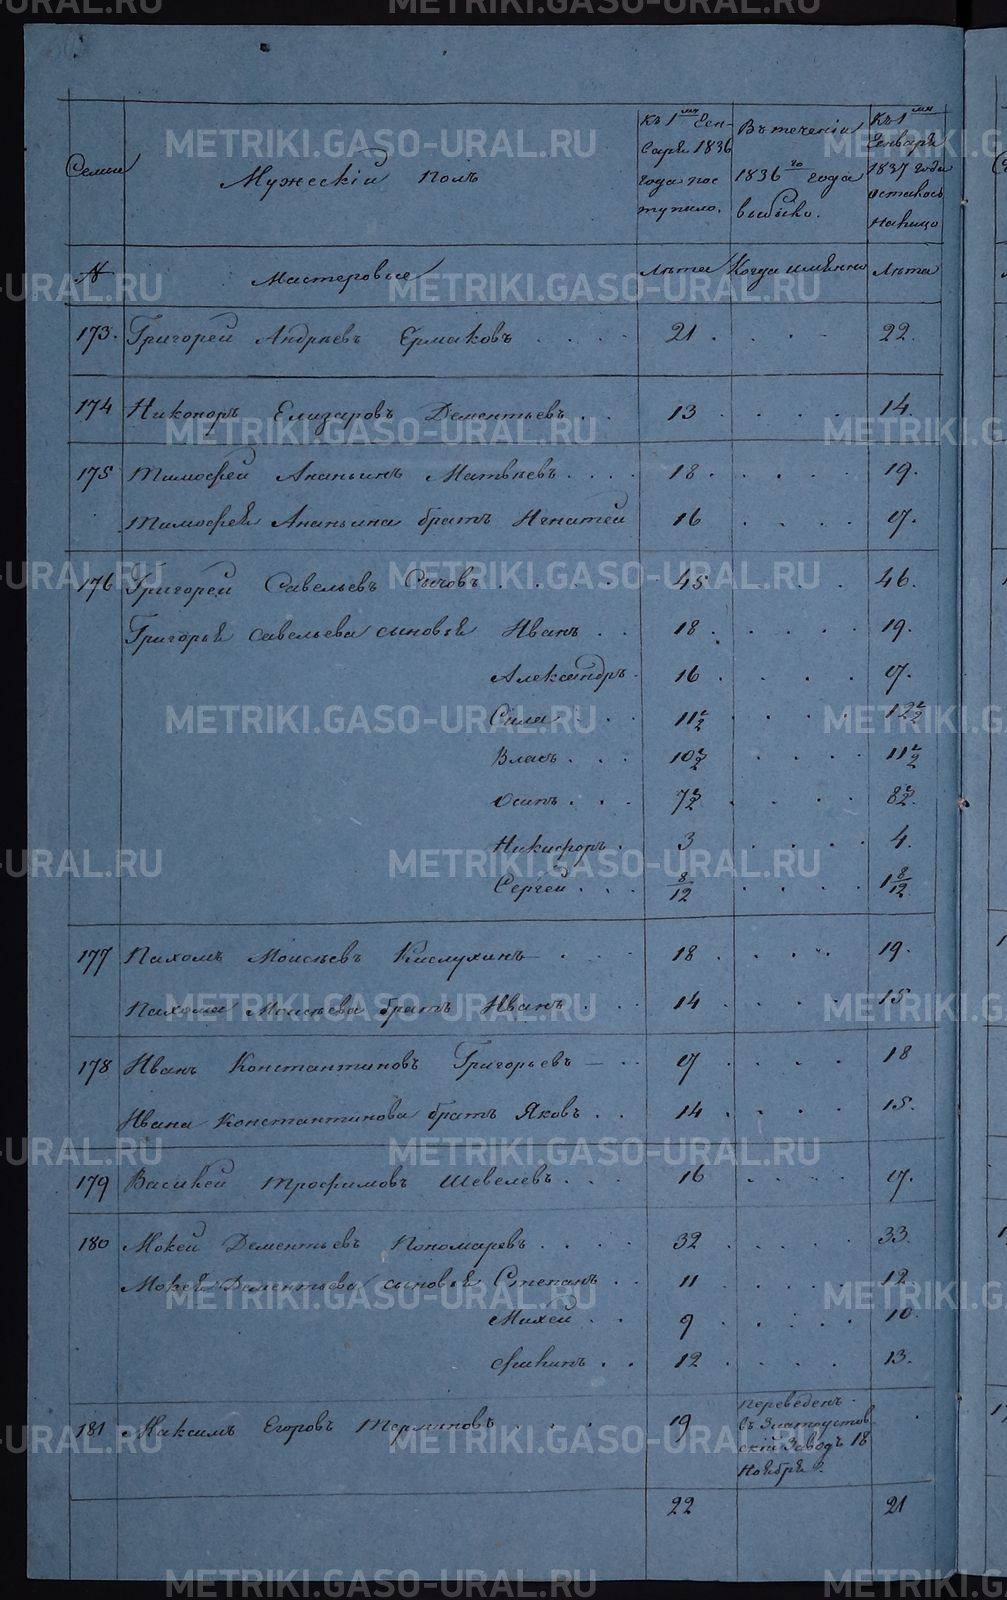 Семьи
Мужескій полъ
Къ 1мч Ген-
варя 1836
года пос
тупило.
Въ теченіи
1836го года
выбыло.
Къ 1мч
Генваря
1837 года
осталось
на лицо
№ Мастеровые Лѣта Когда имянно Лѣта
173. Григорей Андрѣевъ Ермаковъ . . . . 21 . . . . 22.
174 Никоноръ Елизаровъ Дементьевъ . . 13 . . . . 14.
175 Тимофей Ананьинъ Матвѣевъ . . . . 18 . . . . 19.
Тимофея Ананьина братъ Игнатей 16 . . . . 17.
176 Григорей Савельевъ Сычовъ . . . . 45 . . . 46.
Григорья Савельева сыновья Иванъ . . 18 . . . . 19.
Александръ . 16 . . . . 17.
Сила . . . 11 2/2 . . . . 12 2/2
Власъ . . . 10 3/2 . . . . 11 2/2
Осипъ . . . 7 3/2 . . . . 8 3/2.
Никифоръ . 3 . . . . 4.
Сергей . . . 8/12 . . . . 1 8/12.
177 Пахомъ Моисѣевъ Кислухинъ . . . 18 . . . . 19.
Пахома Моисѣева братъ Иванъ . . . 14 . . . . 15
178 Иванъ Константиновъ Григорьевъ — . . 17 . . . . 18
Ивана Константинова братъ Яковъ . . 14 . . . . 15.
179 Василей Трофимовъ Шевелевъ . . . 16 . . . . 17.
180 Мокей Дементьевъ Пономаревъ . . . . 32 . . . . 33.
Мокея Дементьева сыновья Степанъ . . 11 . . . . 12.
Михей . . 9 . . . . 10.
. . 12 . . . . 13.
181 Максимъ Егоровъ . . . 19
переведенъ
въ Златоустов
ской Заводъ 18
Ноября
22 21
METRIKI.GASO-URAL.RU